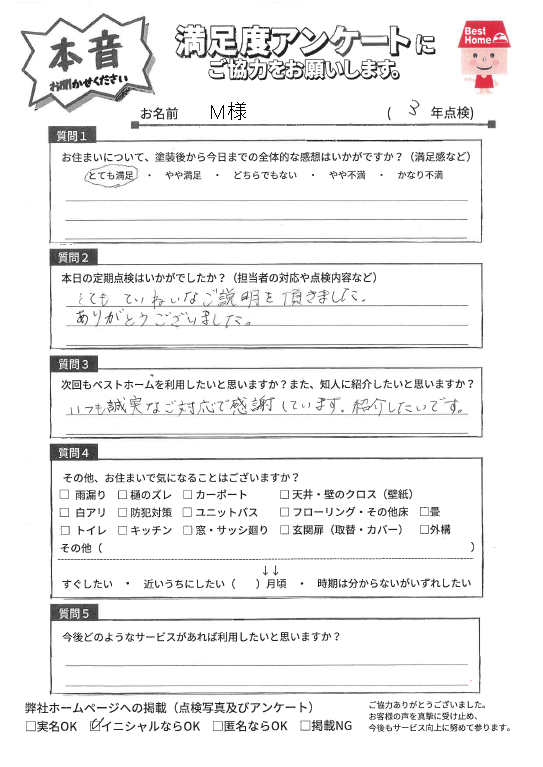 本音
お聞かせください
満足度アンケートに
ご協力をお願いします。
Best Home
お名前 M様 ( 3 年点検)
質問1
お住まいについて、塗装後から今日までの全体的な感想はいかがですか？（満足感など）
とても満足 ・ やや満足 ・ どちらでもない ・ やや不満 ・ かなり不満
質問2
本日の定期点検はいかがでしたか？（担当者の対応や点検内容など）
とても ていねいなご説明を頂きました。
ありがとうございました。
質問3
次回もベストホームを利用したいと思いますか？また、知人に紹介したいと思いますか？
いつも誠実なご対応で感謝しています。紹介したいです。
質問4
その他、お住まいで気になることはございますか？
□ 雨漏り □ 樋のズレ □ カーポート □ 天井・壁のクロス（壁紙）
□ 白アリ □ 防犯対策 □ ユニットバス □ フローリング・その他床 □畳
□ トイレ □ キッチン □ 窓・サッシ廻り □ 玄関扉（取替・カバー） □外構
その他（ ）
↓↓
すぐしたい ・ 近いうちにしたい（ ）月頃 ・ 時期は分からないがいずれしたい
質問5
今後どのようなサービスがあれば利用したいと思いますか？
弊社ホームページへの掲載（点検写真及びアンケート）
□実名OK ☑イニシャルならOK □匿名ならOK □掲載NG
ご協力ありがとうございました。
お客様の声を真摯に受け止め、
今後もサービス向上に努めて参ります。